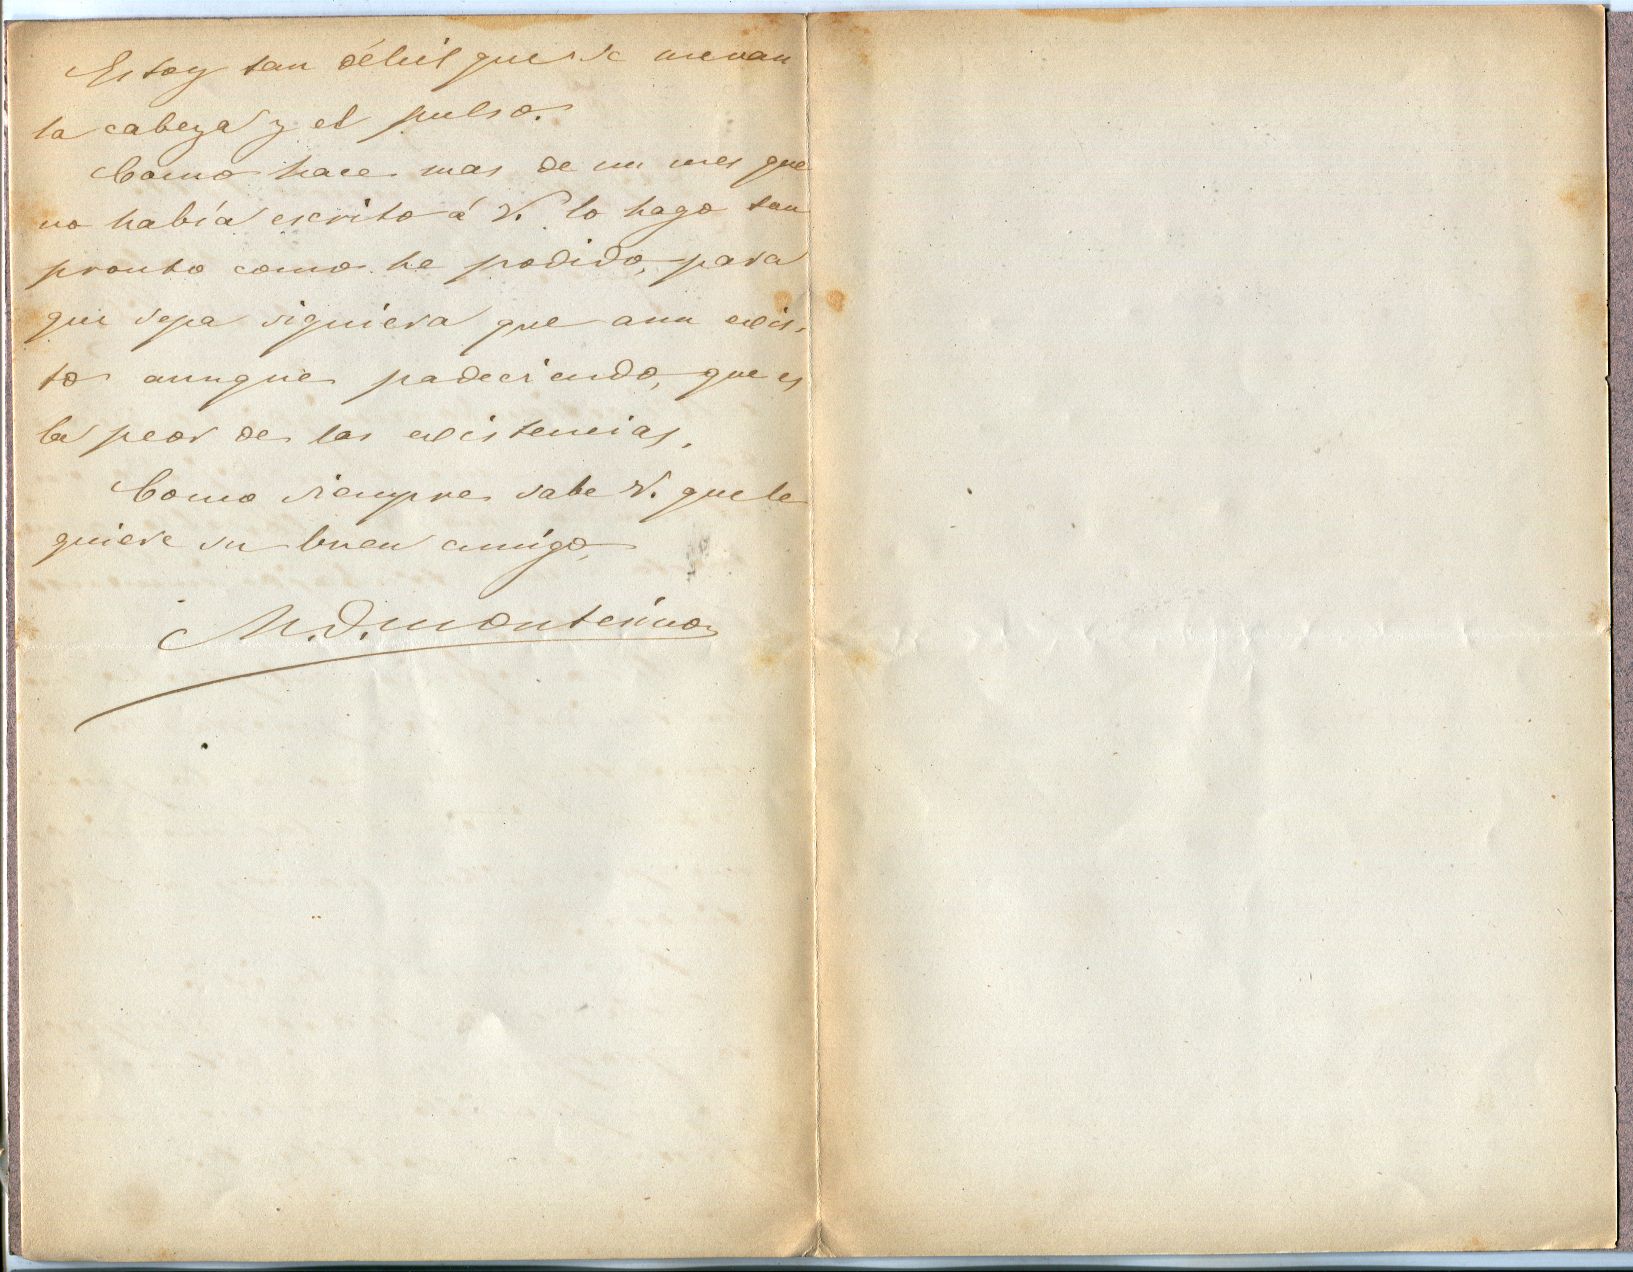 Estoy tan débil que se me van
la cabeza y el pulso.
Como hace mas de un mes que
no había escrito á V. lo hago tan
pronto como he podido, para
que sepa siquiera que aun exis-
to aunque padeciendo, que es
la peor de las existencias.
Como siempre sabe V. que le
quiere su buen amigo,
M. D. Montesinos